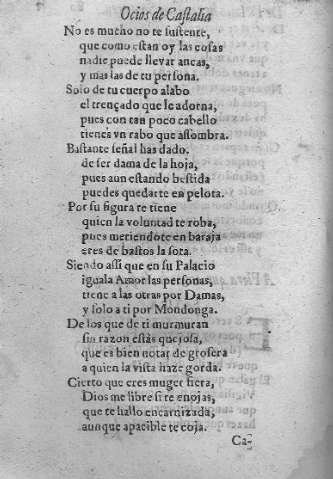 Ocios de Castalia
No es mucho no te sustente,
que como estan oy las cosas
nadie puede llevar ancas,
y mas las de tu persona.
Solo de tu cuerpo alabo
el trençado que le adorna,
pues con tan poco cabello
tienes vn rabo que assombra.
Bastante señal has dado,
de ser dama de la hoja,
pues aun estando bestida
puedes quedarte en pelota.
Por su figura te tiene
quien la voluntad te roba,
pues metiendote en baraja
eres de bastos la sota.
Siendo assi que en su Palacio
iguala Amor las personas,
tiene a las otras por Damas,
y solo a ti por Mondonga.
De los que de ti murmuran
sin razon estàs quejosa,
que es bien notar de grosera
a quien la vista haze gorda.
Cierto que eres muger fiera,
Dios me libre si te enojas,
que te hallo encarnizada,
aunque apacible te coja.
Ca-